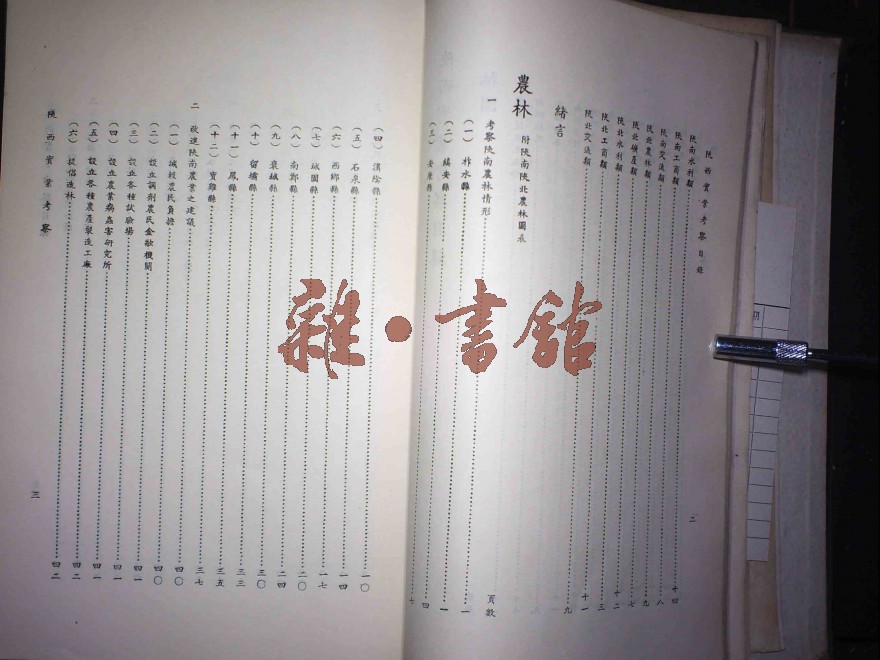 陝西實業考察目錄
二
陝南水利類 十四
陝南工商類 八
陝南交通類 一
陝北農林類 九
陝北礦產類 七
陝北水利類 十二
陝北工商類 三
陝北交通類 十一
緒言 九
農林 附陝南陝北農林圖表
頁數
一 考察陝南農林情形 一
(一)柞水縣 一
(二)鎮安縣 四
(三)安康縣 七
(四)漢陰縣 一〇
(五)石泉縣 一四
(六)西鄉縣 一七
(七)城固縣 二〇
(八)南鄭縣 二四
(九)褒城縣 三〇
(十)留壩縣 三三
(十一)鳳縣 三五
(十二)寶雞縣 三七
二 改進陝南農業之建議 四〇
(一)減輕農民負擔 四〇
(二)設立調劑農民金融機關 四一
(三)設立各種試驗場 四一
(四)設立農業病蟲害研究所 四一
(五)設立各種農產製造工廠 四二
(六)提倡造林 四二
陝西實業考察
三
雜·書館